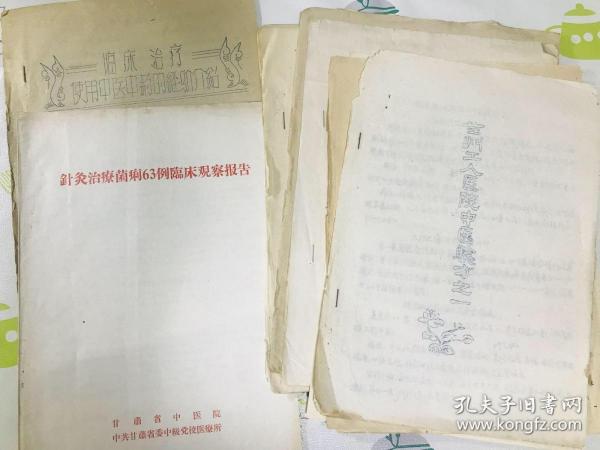 临床 治疗
使用中医中药的经验介绍
針灸治療菌痢63例臨床观察报告
甘肃省中医院
中共甘肃省委中級党校医療所
兰州工人医院中医验方之一
孔夫子旧书网
www.kongfz.com